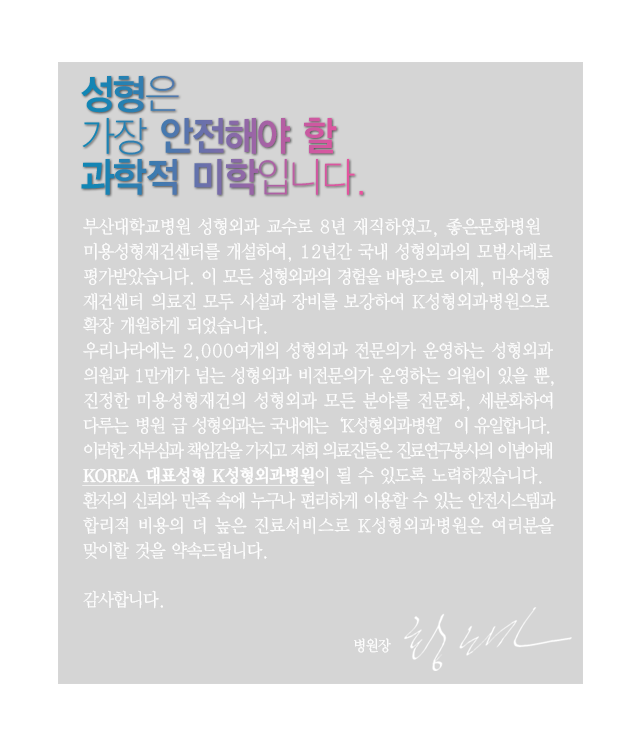 성형은
가장 안전해야 할
과학적 미학입니다.
부산대학교병원 성형외과 교수로 8년 재직하였고, 좋은문화병원
미용성형재건센터를 개설하여, 12년간 국내 성형외과의 모범사례로
평가받았습니다. 이 모든 성형외과의 경험을 바탕으로 이제, 미용성형
재건센터 의료진 모두 시설과 장비를 보강하여 K성형외과병원으로
확장 개원하게 되었습니다.
우리나라에는 2,000여개의 성형외과 전문의가 운영하는 성형외과
의원과 1만개가 넘는 성형외과 비전문의가 운영하는 의원이 있을 뿐,
진정한 미용성형재건의 성형외과 모든 분야를 전문화, 세분화하여
다루는 병원 급 성형외과는 국내에는 'K성형외과병원' 이 유일합니다.
이러한 자부심과 책임감을 가지고 저희 의료진들은 진료연구봉사의 이념아래
KOREA 대표성형 K성형외과병원이 될 수 있도록 노력하겠습니다.
환자의 신뢰와 만족 속에 누구나 편리하게 이용할 수 있는 안전시스템과
합리적 비용의 더 높은 진료서비스로 K성형외과병원은 여러분을
맞이할 것을 약속드립니다.
감사합니다.
병원장